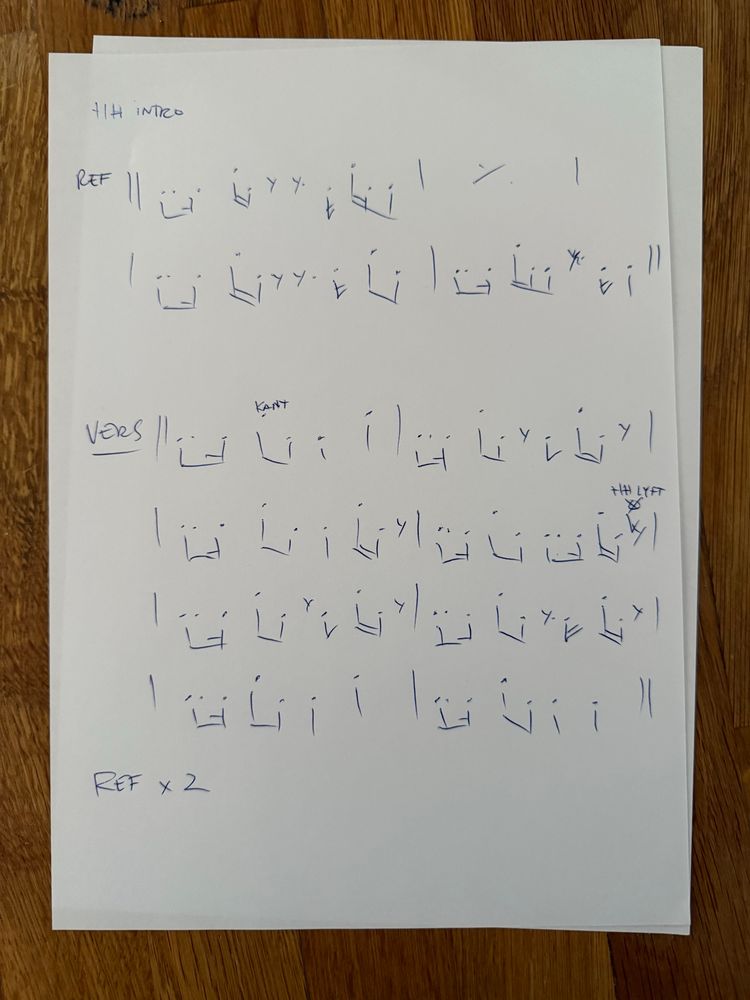 HH INTRO
REF
KANT
VERS
HH LYFT
REF x 2